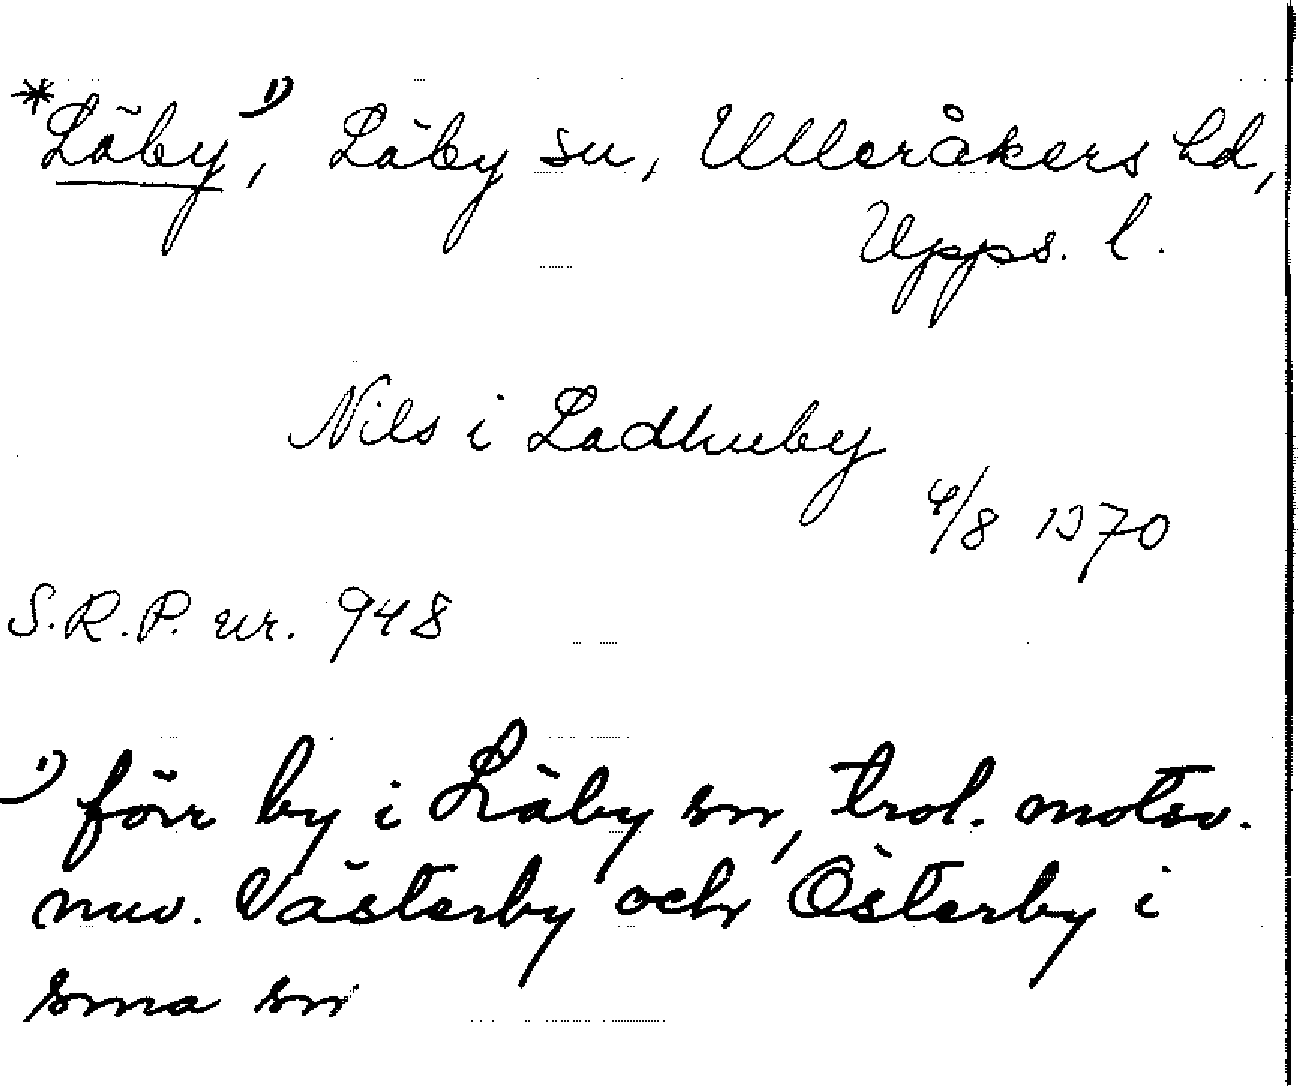 *Läby,¹⁾ Läby sn, Ulleråkers hd,
Upps. l.
Nils i Ladhuby
4/8 1370
S.R.P. nr. 948
¹⁾ förr by i Läby sn, trol. motsv.
nuv. Västerby och Österby i
sma sn